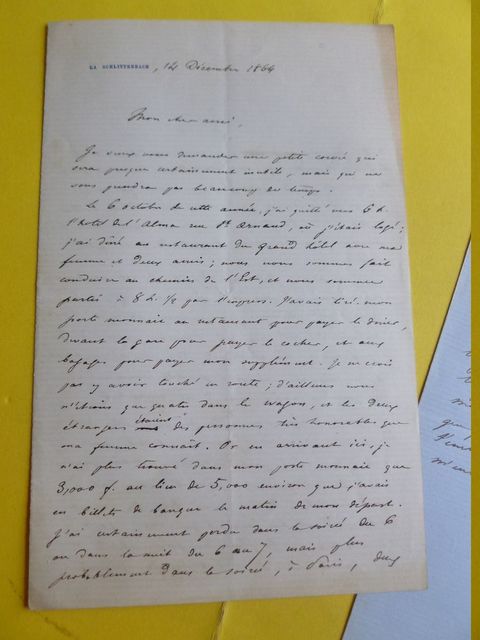 LA SCHLITTENBACH, 14 Décembre 1864
Mon cher ami,
Je veux vous demander une petite corvée qui
sera presque certainement inutile, mais qui ne
vous prendra pas beaucoup de temps.
Le 6 octobre de cette année, j'ai quitté vers 6 h.
l'hotel de l'Alma rue St Arnaud, où j'étais logé;
j'ai diné au restaurant du Grand hôtel avec ma
femme et deux amis; nous nous sommes fait
conduire au chemin de l'Est, et nous sommes
partis à 8 h. 1/2 par l'express. J'avais tiré mon
porte monnaie au restaurant pour payer le diner,
devant la gare pour payer le cocher, et aux
bagages pour payer mon supplément. Je ne crois
pas y avoir touché en route; d'ailleurs nous
n'étions que quatre dans le wagon, et les deux
étrangers étaient des personnes très honorables que
ma femme connait. Or en arrivant ici, je
n'ai plus trouvé dans mon porte monnaie que
3,000 f. au lieu de 5,000 environ que j'avais
en billets de banque le matin de mon départ.
J'ai certainement perdu dans la soirée du 6
ou dans la nuit du 6 au 7, mais plus
probablement dans la soirée, à Paris, deux